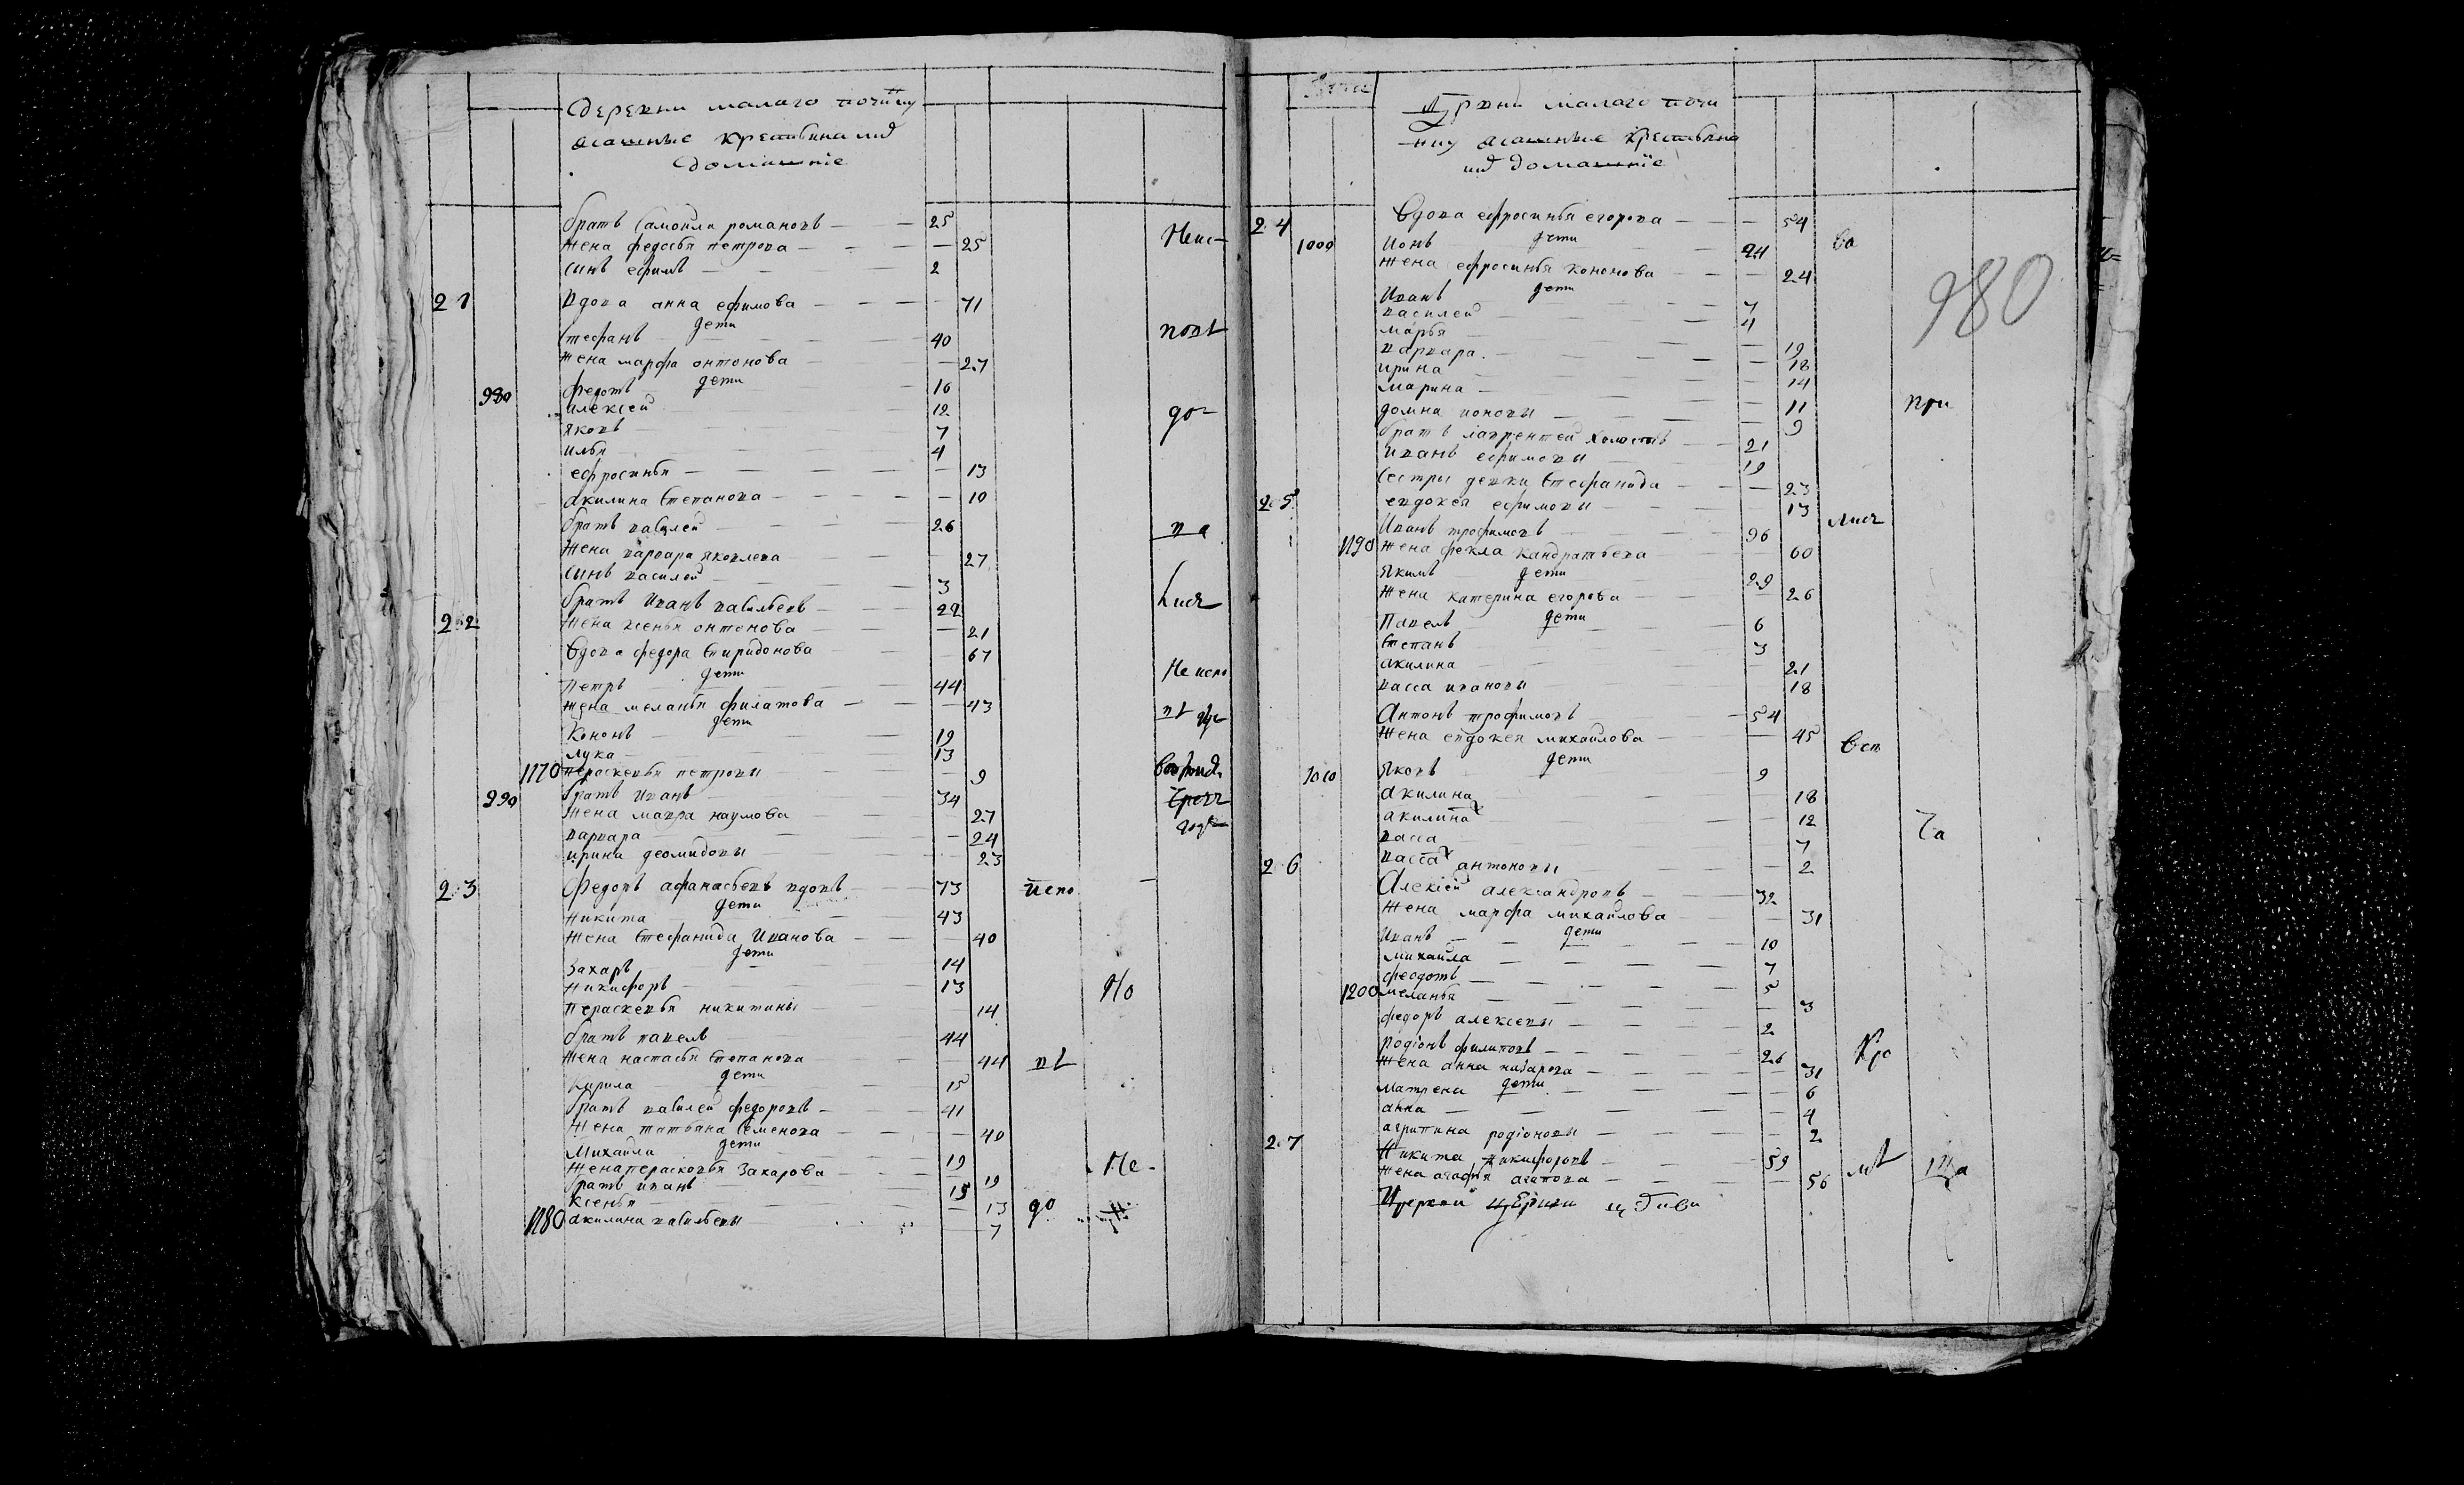 деревни малаго почину
асашные крестьяна ихъ
домашніе
братъ самойла романовъ 25
жена федосья петрова 25 Неис-
сынъ ефимъ 2
21 вдова анна ефимова 71
дети
стефанъ 40 повѣ
жена марфа онтонова 27
дети
980 федотъ 16
алексей 12 до-
яковъ 7
илья 4
ефросинья 13
акилина степанова 10
братъ василей 26 ва
жена варвара яковлева 27
сынъ василей 3
братъ иванъ васильевъ 22
22 жена ксенья онтонова 21
вдова федора спиридонова 67
дети Не испо
петръ 44
жена меланья филатова 43
дети
кононъ 19
лука 13
1170 пераскевья петровы 9
990 братъ иванъ 34
жена мавра наумова 27
варвара 24
ирина деомидовы 23
23 федоръ афанасьевъ вдовъ 73 испо
дети
никита 43
жена стефанида иванова 40
дети
захаръ 14
никифоръ 13 По
пераскевья никитины 14
братъ павелъ 44
жена настасья степанова 44 вѣ
дети
кирила 15
братъ василей федоровъ 41
жена татьяна семенова 40
дети
михайла 19
жена пераскевья захарова 19 Не-
братъ иванъ 15
ксенья 13 до
1180 акилина васильевы 7
980
деревни малаго почи
ниу асашные крестьяна
ихъ домашніе
24 вдова ефросинья егорова 54
дети ва
1000 ионъ 24
жена ефросинья кононова 24
дети
иванъ 7
василей 4
марья 19
варвара 18
ирина 14
марина 11 при
домна ионовы 9
братъ лаврентей холостъ 21
иванъ ефимовы 19
сестры девки стефанида 23
25 евдокея ефимовы 13
иванъ трофимовъ 96
1190 жена фекла кандратьева 60
дети
якимъ 29
жена катерина егорова 26
дети
павелъ 6
степанъ 3
акилина 21
васса ивановы 18
антонъ трофимовъ 54
жена евдокея михайлова 45
дети
1010 яковъ 9
акилина 18
акилина 12
васса 7 Ча
васса антоновы 2
26 алексей александровъ 32
жена марфа михайлова 31
дети
иванъ 10
михайла 7
феодотъ 5
1200 меланья 3
федоръ алексевы 2
родіонъ филиповъ 26
жена анна назарова 31
дети
матрена 6
анна 4
агрипина родіоновы 2
27 никита никифоровъ 59
жена агафья агапова 56